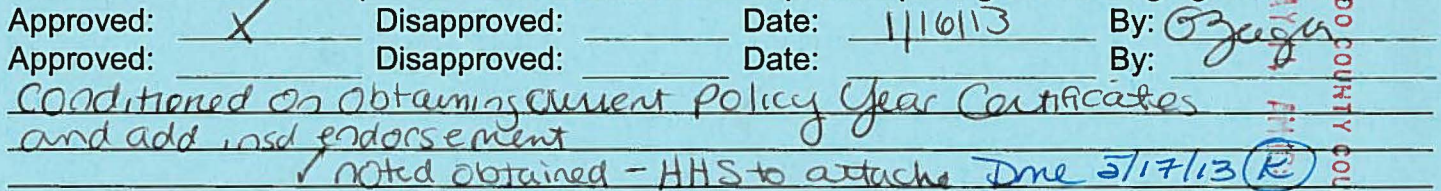 Approved: X Disapproved: Date: 1/16/13 By:
Approved: Disapproved: Date: By:
Conditioned on obtaining current policy year Certificates
and add insd endorsement
✓ noted obtained - HHS to attache Done 5/17/13 K
DO COUNTY COU